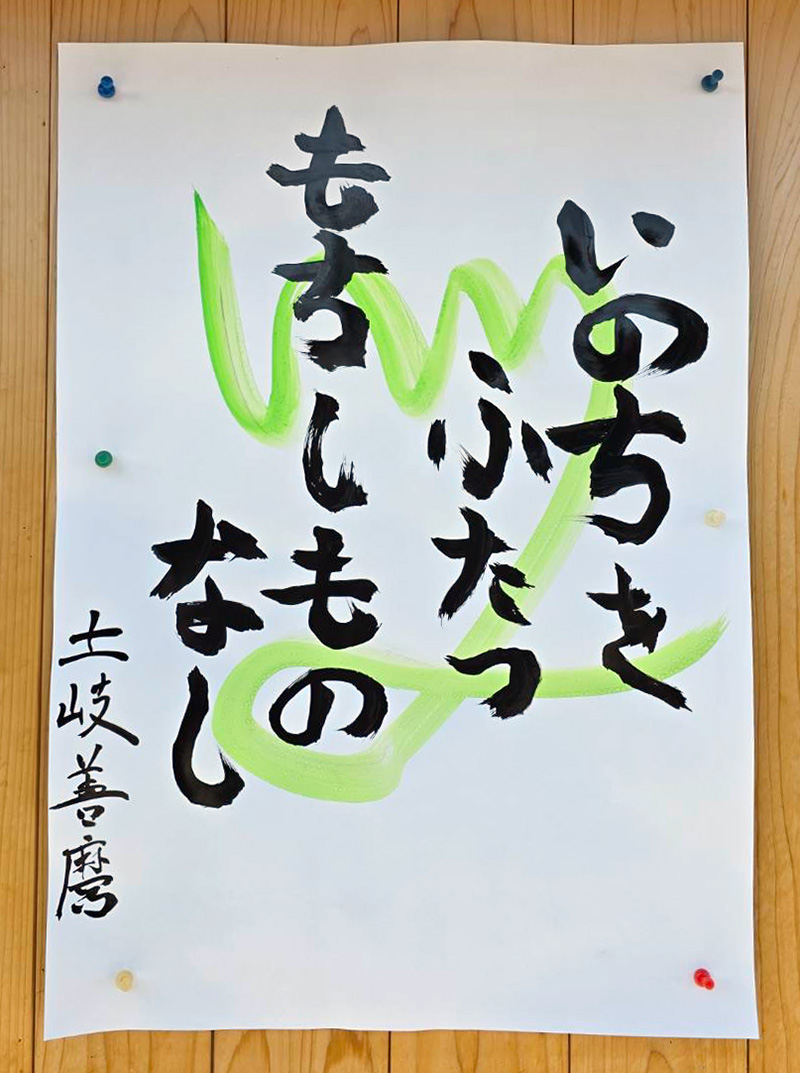 いのちを
ふたつ
もちしもの
なし
土岐善麿